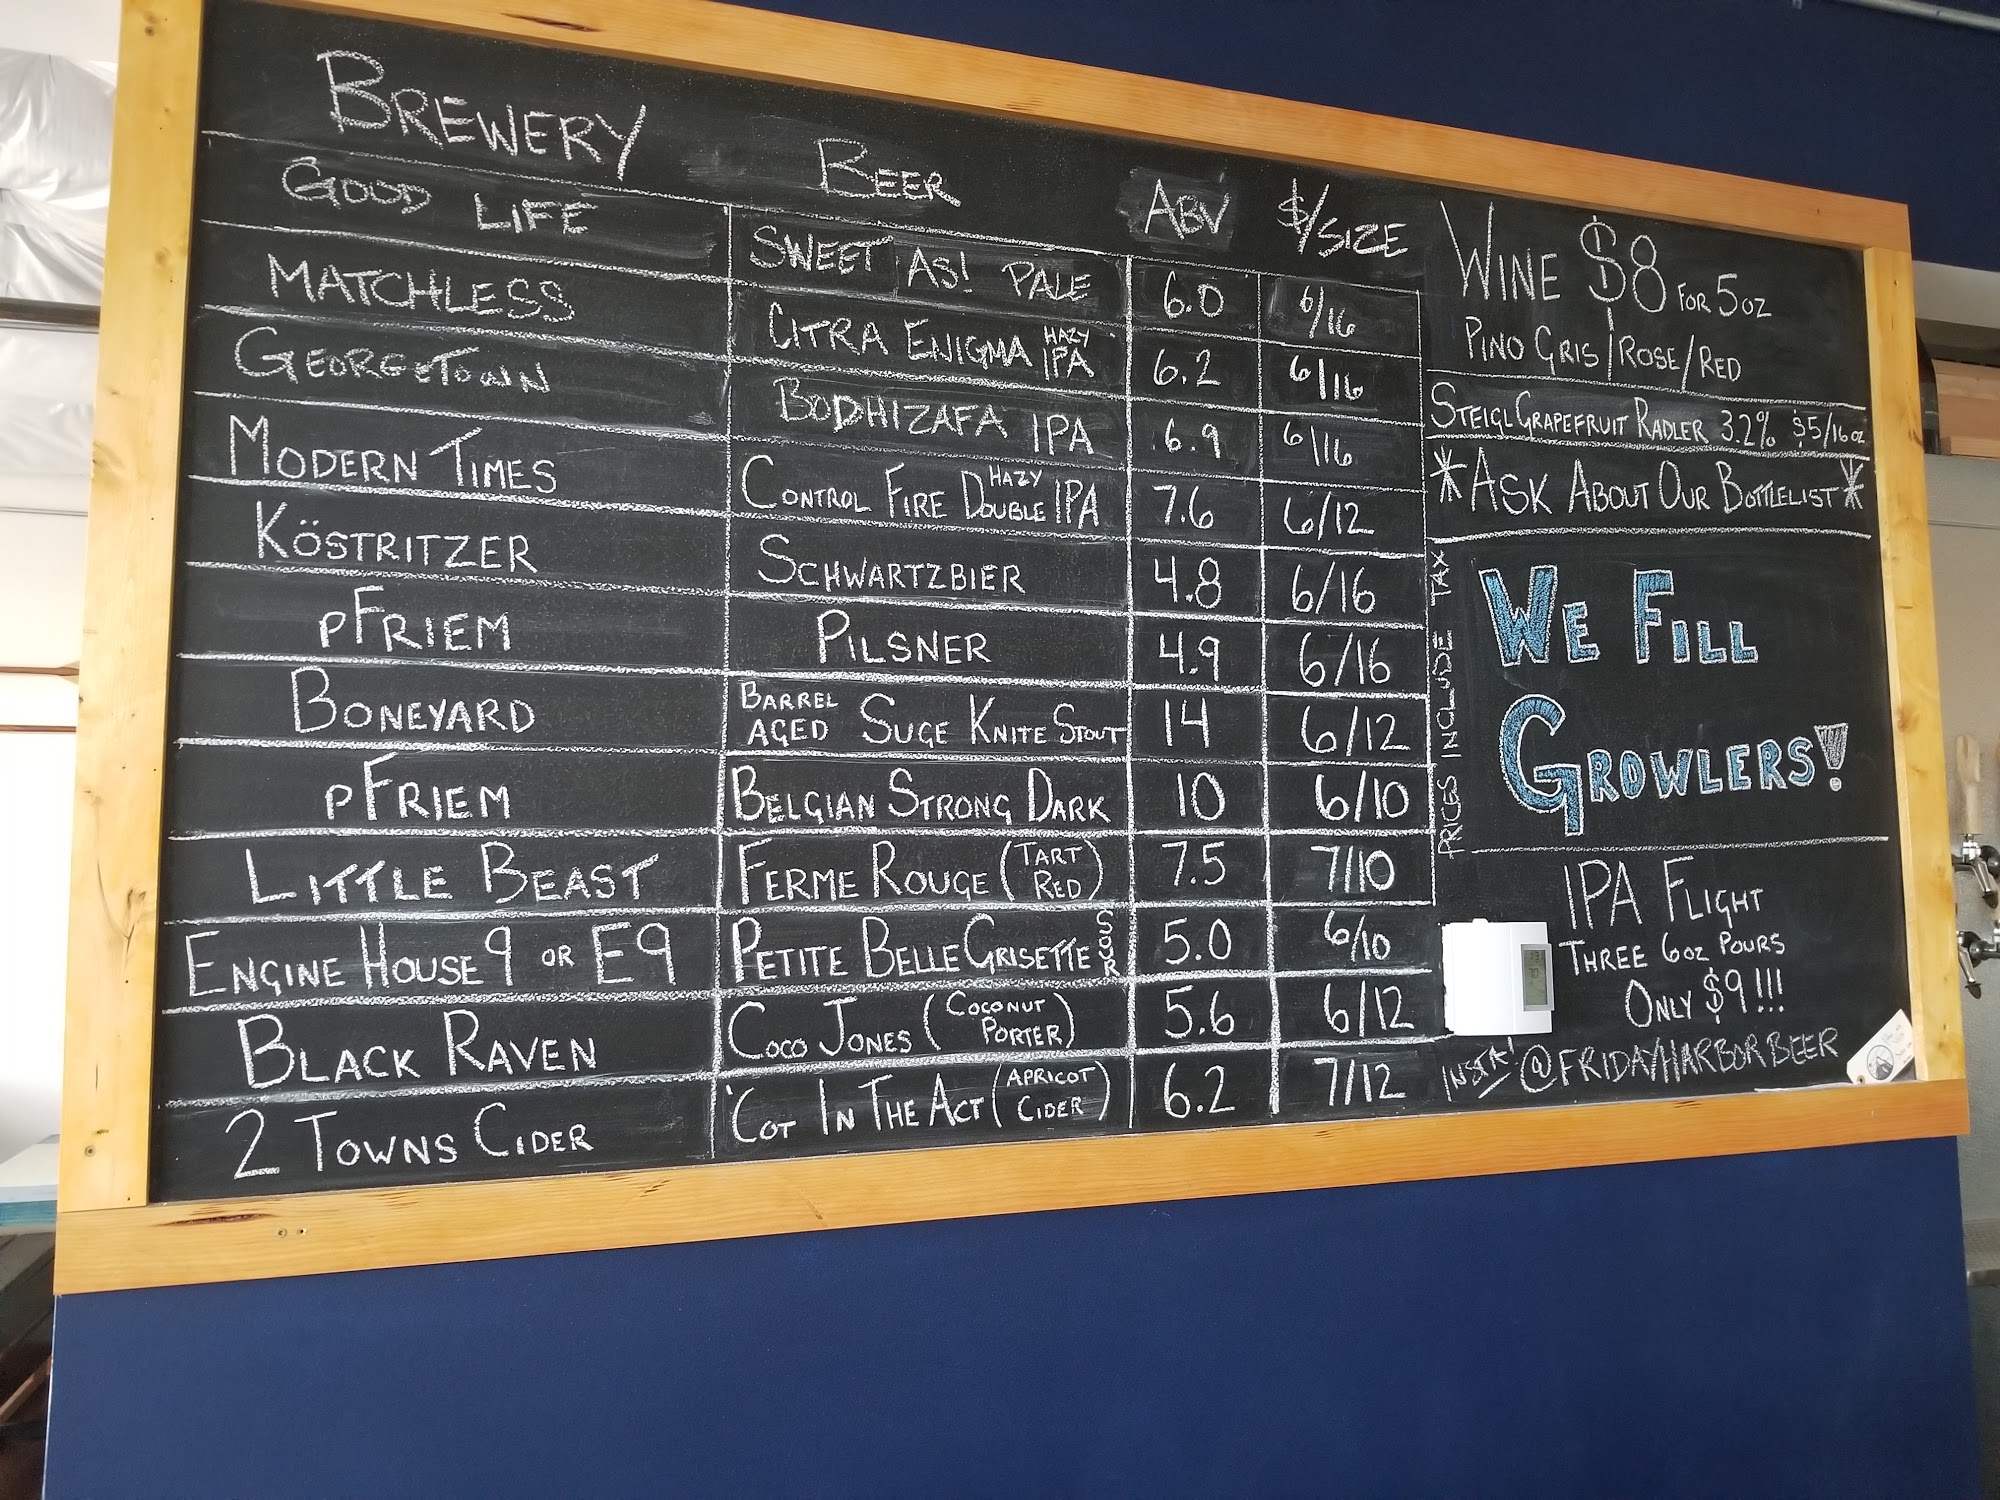 BREWERY BEER ABV $/SIZE
GOOD LIFE SWEET AS! PALE 6.0 6/16
MATCHLESS CITRA ENIGMA HAZY IPA 6.2 6/16
GEORGETOWN BODHIZAFA IPA 6.9 6/16
MODERN TIMES CONTROL FIRE HAZY DOUBLE IPA 7.6 6/12
KÖSTRITZER SCHWARTZBIER 4.8 6/16
PFRIEM PILSNER 4.9 6/16
BONEYARD BARREL AGED SUGE KNITE STOUT 14 6/12
PFRIEM BELGIAN STRONG DARK 10 6/10
LITTLE BEAST FERME ROUGE (TART RED) 7.5 7/10
ENGINE HOUSE 9 OR E9 PETITE BELLE GRISETTE SOUR 5.0 6/10
BLACK RAVEN COCO JONES (COCONUT PORTER) 5.6 6/12
2 TOWNS CIDER 'COT IN THE ACT (APRICOT CIDER) 6.2 7/12
PRICES INCLUDE TAX
WINE $8 FOR 5OZ
PINO GRIS/ROSE/RED
STEIGL GRAPEFRUIT RADLER 3.2% $5/16OZ
*ASK ABOUT OUR BOTTLELIST*
WE FILL
GROWLERS!
IPA FLIGHT
THREE 6OZ POURS
ONLY $9!!!
INSTA! @FRIDAYHARBORBEER